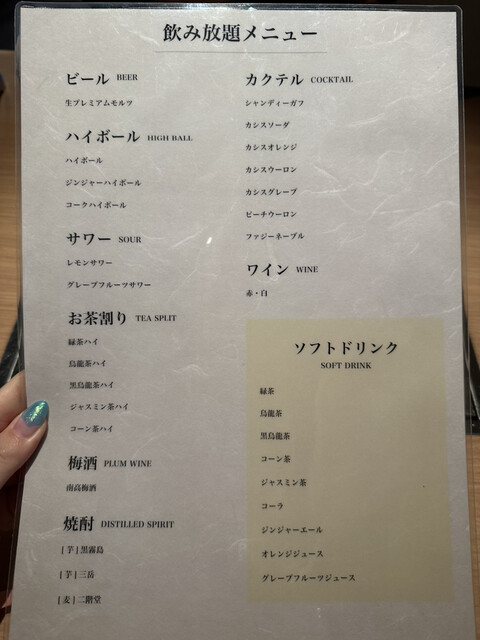 飲み放題メニュー
ビール BEER
生プレミアムモルツ
ハイボール HIGH BALL
ハイボール
ジンジャーハイボール
コークハイボール
サワー SOUR
レモンサワー
グレープフルーツサワー
お茶割り TEA SPLIT
緑茶ハイ
烏龍茶ハイ
黒烏龍茶ハイ
ジャスミン茶ハイ
コーン茶ハイ
梅酒 PLUM WINE
南高梅酒
焼酎 DISTILLED SPIRIT
[芋]黒霧島
[芋]三岳
[麦]二階堂
カクテル COCKTAIL
シャンディーガフ
カシスソーダ
カシスオレンジ
カシスウーロン
カシスグレープ
ピーチウーロン
ファジーネーブル
ワイン WINE
赤・白
ソフトドリンク
SOFT DRINK
緑茶
烏龍茶
黒烏龍茶
コーン茶
ジャスミン茶
コーラ
ジンジャーエール
オレンジジュース
グレープフルーツジュース